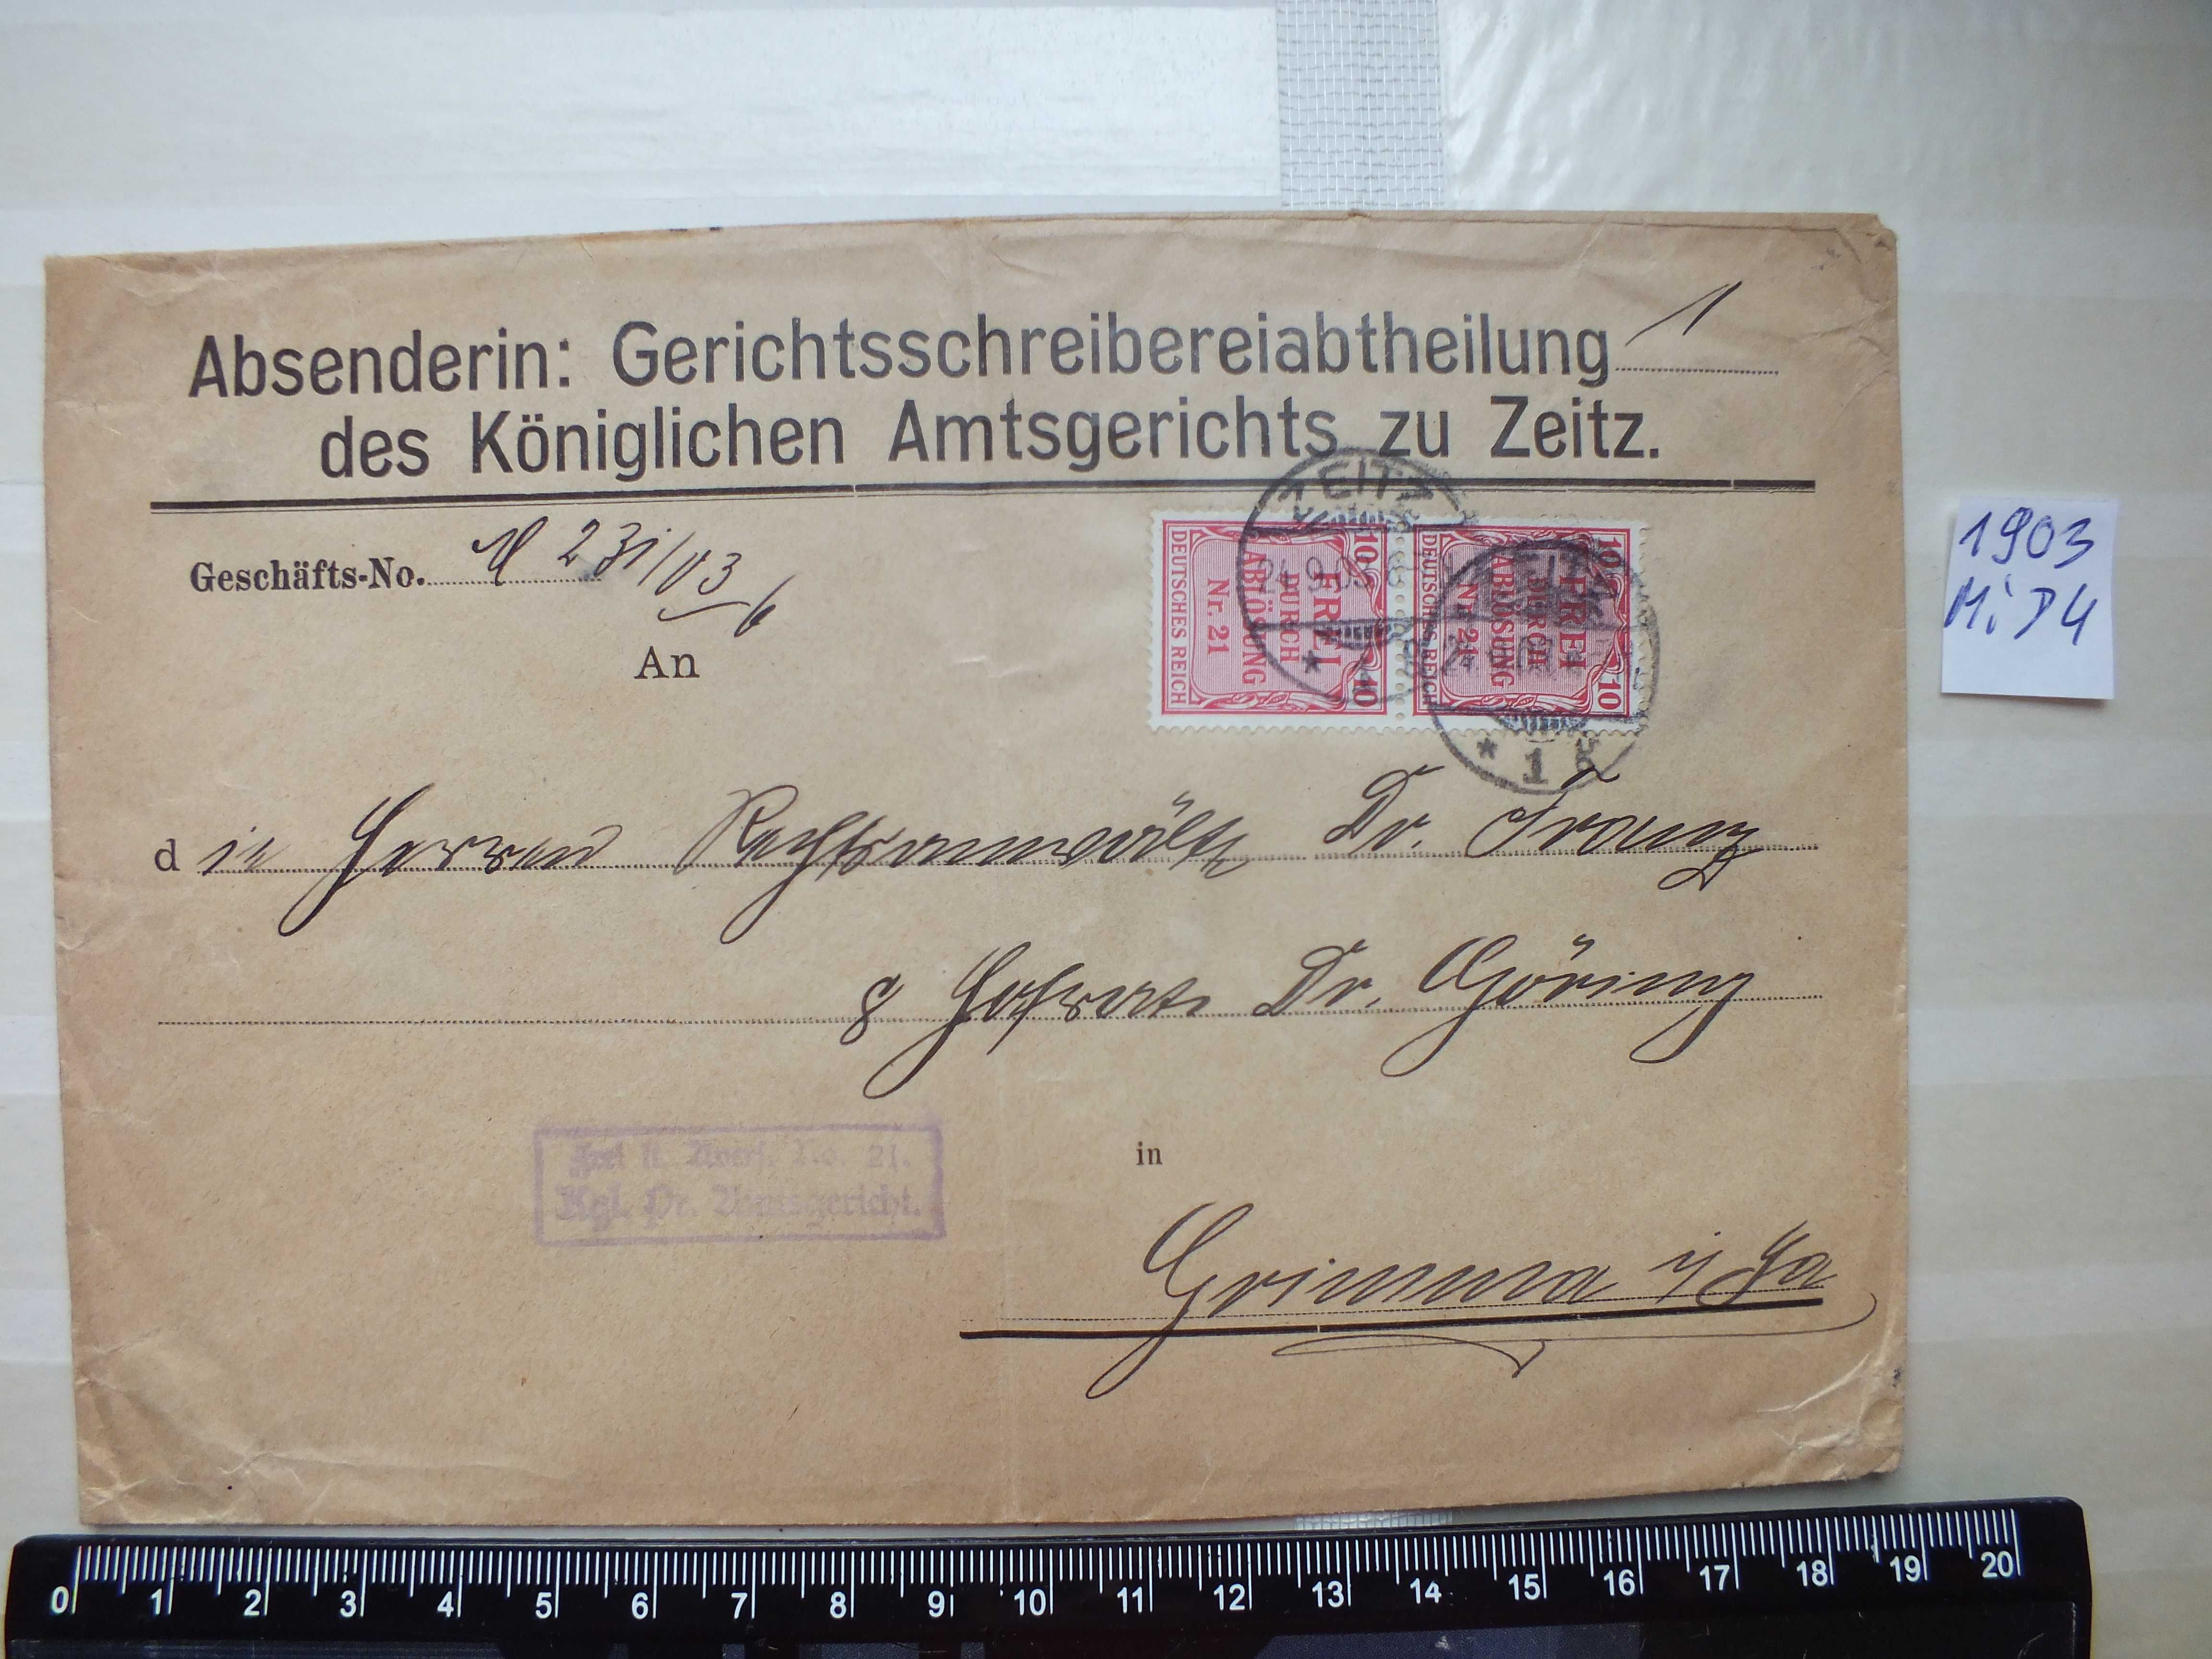 Absenderin: Gerichtsschreibereiabtheilung 1
des Königlichen Amtsgerichts zu Zeitz.
Geschäfts-No. 231/03
6
An
ZEITZ
24.9.03
* 1
10 10
FREI
DURCH
ABLÖSUNG
Nr. 21
DEUTSCHES REICH
10 10
FREI
DURCH
ABLÖSUNG
Nr. 21
DEUTSCHES REICH
* 1
1903
Mi D4
die Herren Rechtsanwälte Dr. Franz
& Hofrat Dr. Göring
No. 21.
Kgl. Pr. Amtsgericht.
in
Grimma i/Sa
0 1 2 3 4 5 6 7 8 9 10 11 12 13 14 15 16 17 18 19 20